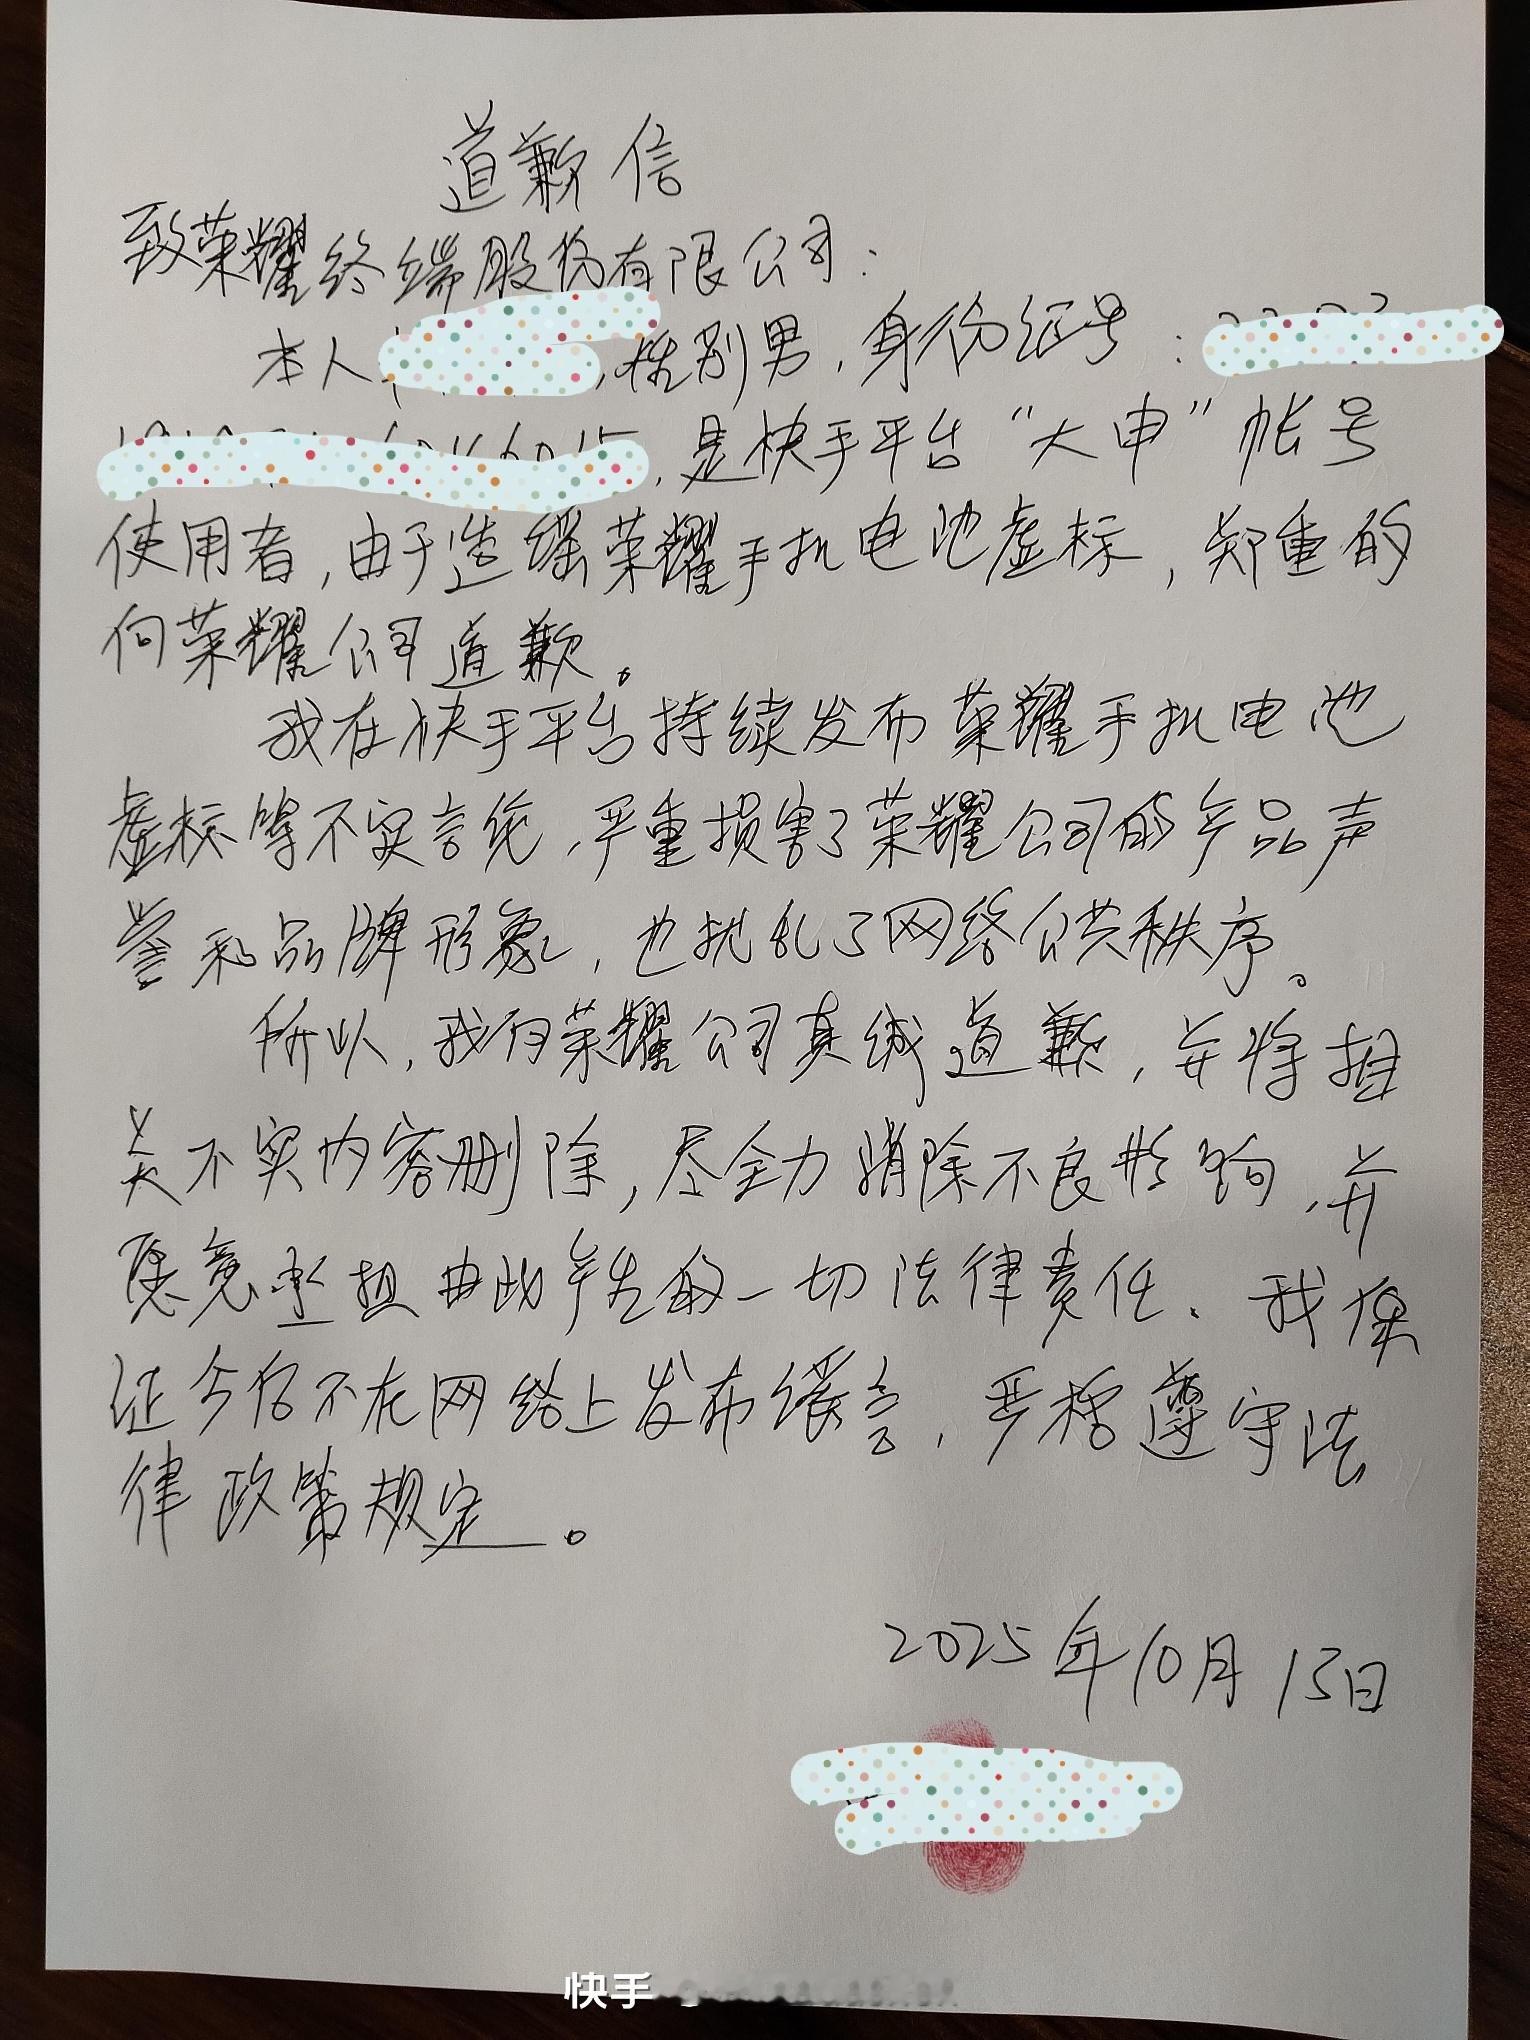 道歉信
致荣耀终端股份有限公司：
本人 ，性别男，身份证号：
，是快手平台“大申”帐号
使用者，由于造谣荣耀手机电池虚标，郑重的
向荣耀公司道歉。
我在快手平台持续发布荣耀手机电池
虚标等不实言论，严重损害了荣耀公司的产品声
誉和品牌形象，也扰乱了网络公共秩序。
所以，我向荣耀公司真诚道歉，并将相
关不实内容删除，尽全力消除不良影响，并
愿意承担由此产生的一切法律责任。我保
证今后不在网络上发布谣言，严格遵守法
律政策规定。
2025年10月13日
快手